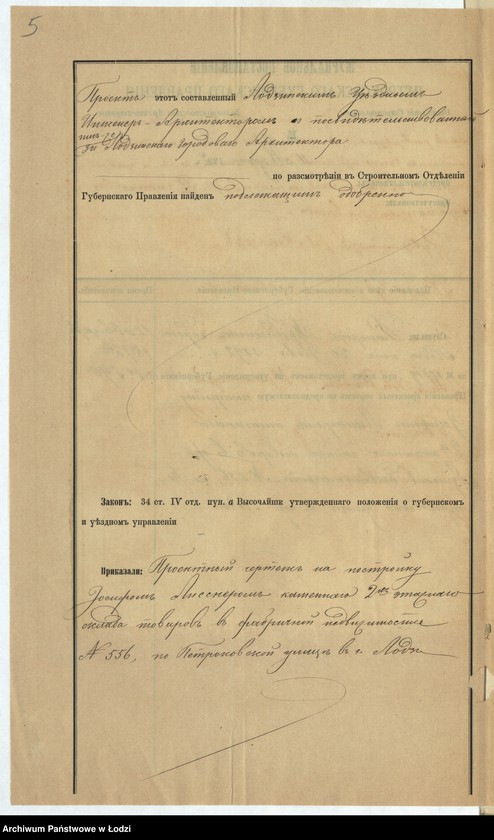 5
Проектъ этотъ составленный Лодзинскимъ Уѣзднымъ
Инженеръ-Архитекторомъ и
Лодзинскаго Городоваго Архитектора
по разсмотрѣніи въ Строительномъ Отдѣленіи
Губернскаго Правленія найденъ подлежащимъ одобренію
Законъ: 34 ст. IV отд. пун. а Высочайше утвержденнаго положенія о губернскомъ
и уѣздномъ управленіи
Приказали: Проектный чертежъ на постройку
Іосифомъ Лисснеромъ каменнаго 2хъ этажнаго
склада товаровъ въ фабричной недвижимости
№ 556, по Петроковской улицѣ въ г. Лодзи
Archiwum Państwowe w Łodzi